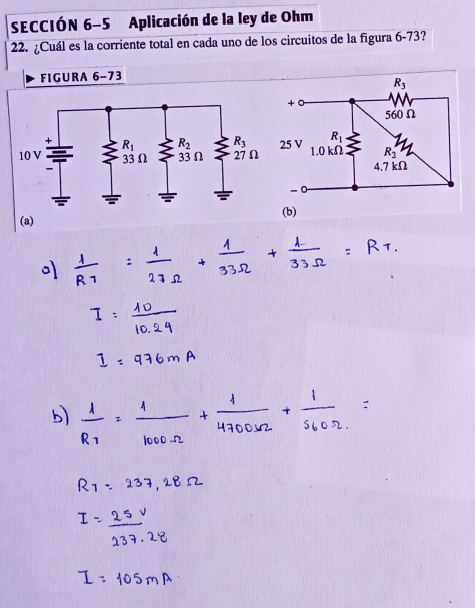 SECCIÓN 6–5 Aplicación de la ley de Ohm
22. ¿Cuál es la corriente total en cada uno de los circuitos de la figura 6-73?
▶ FIGURA 6–73
10 V + −
R1 33 Ω
R2 33 Ω
R3 27 Ω
(a)
R3
560 Ω
+
25 V
R1
1.0 kΩ
R2
4.7 kΩ
−
(b)
a) 1/RT = 1/27Ω + 1/33Ω + 1/33Ω = RT.
I = 10/10.24
I = 976mA
b) 1/RT = 1/1000Ω + 1/4700Ω + 1/560Ω. =
RT = 237,28 Ω
I = 25 V/237.28
I = 105mA